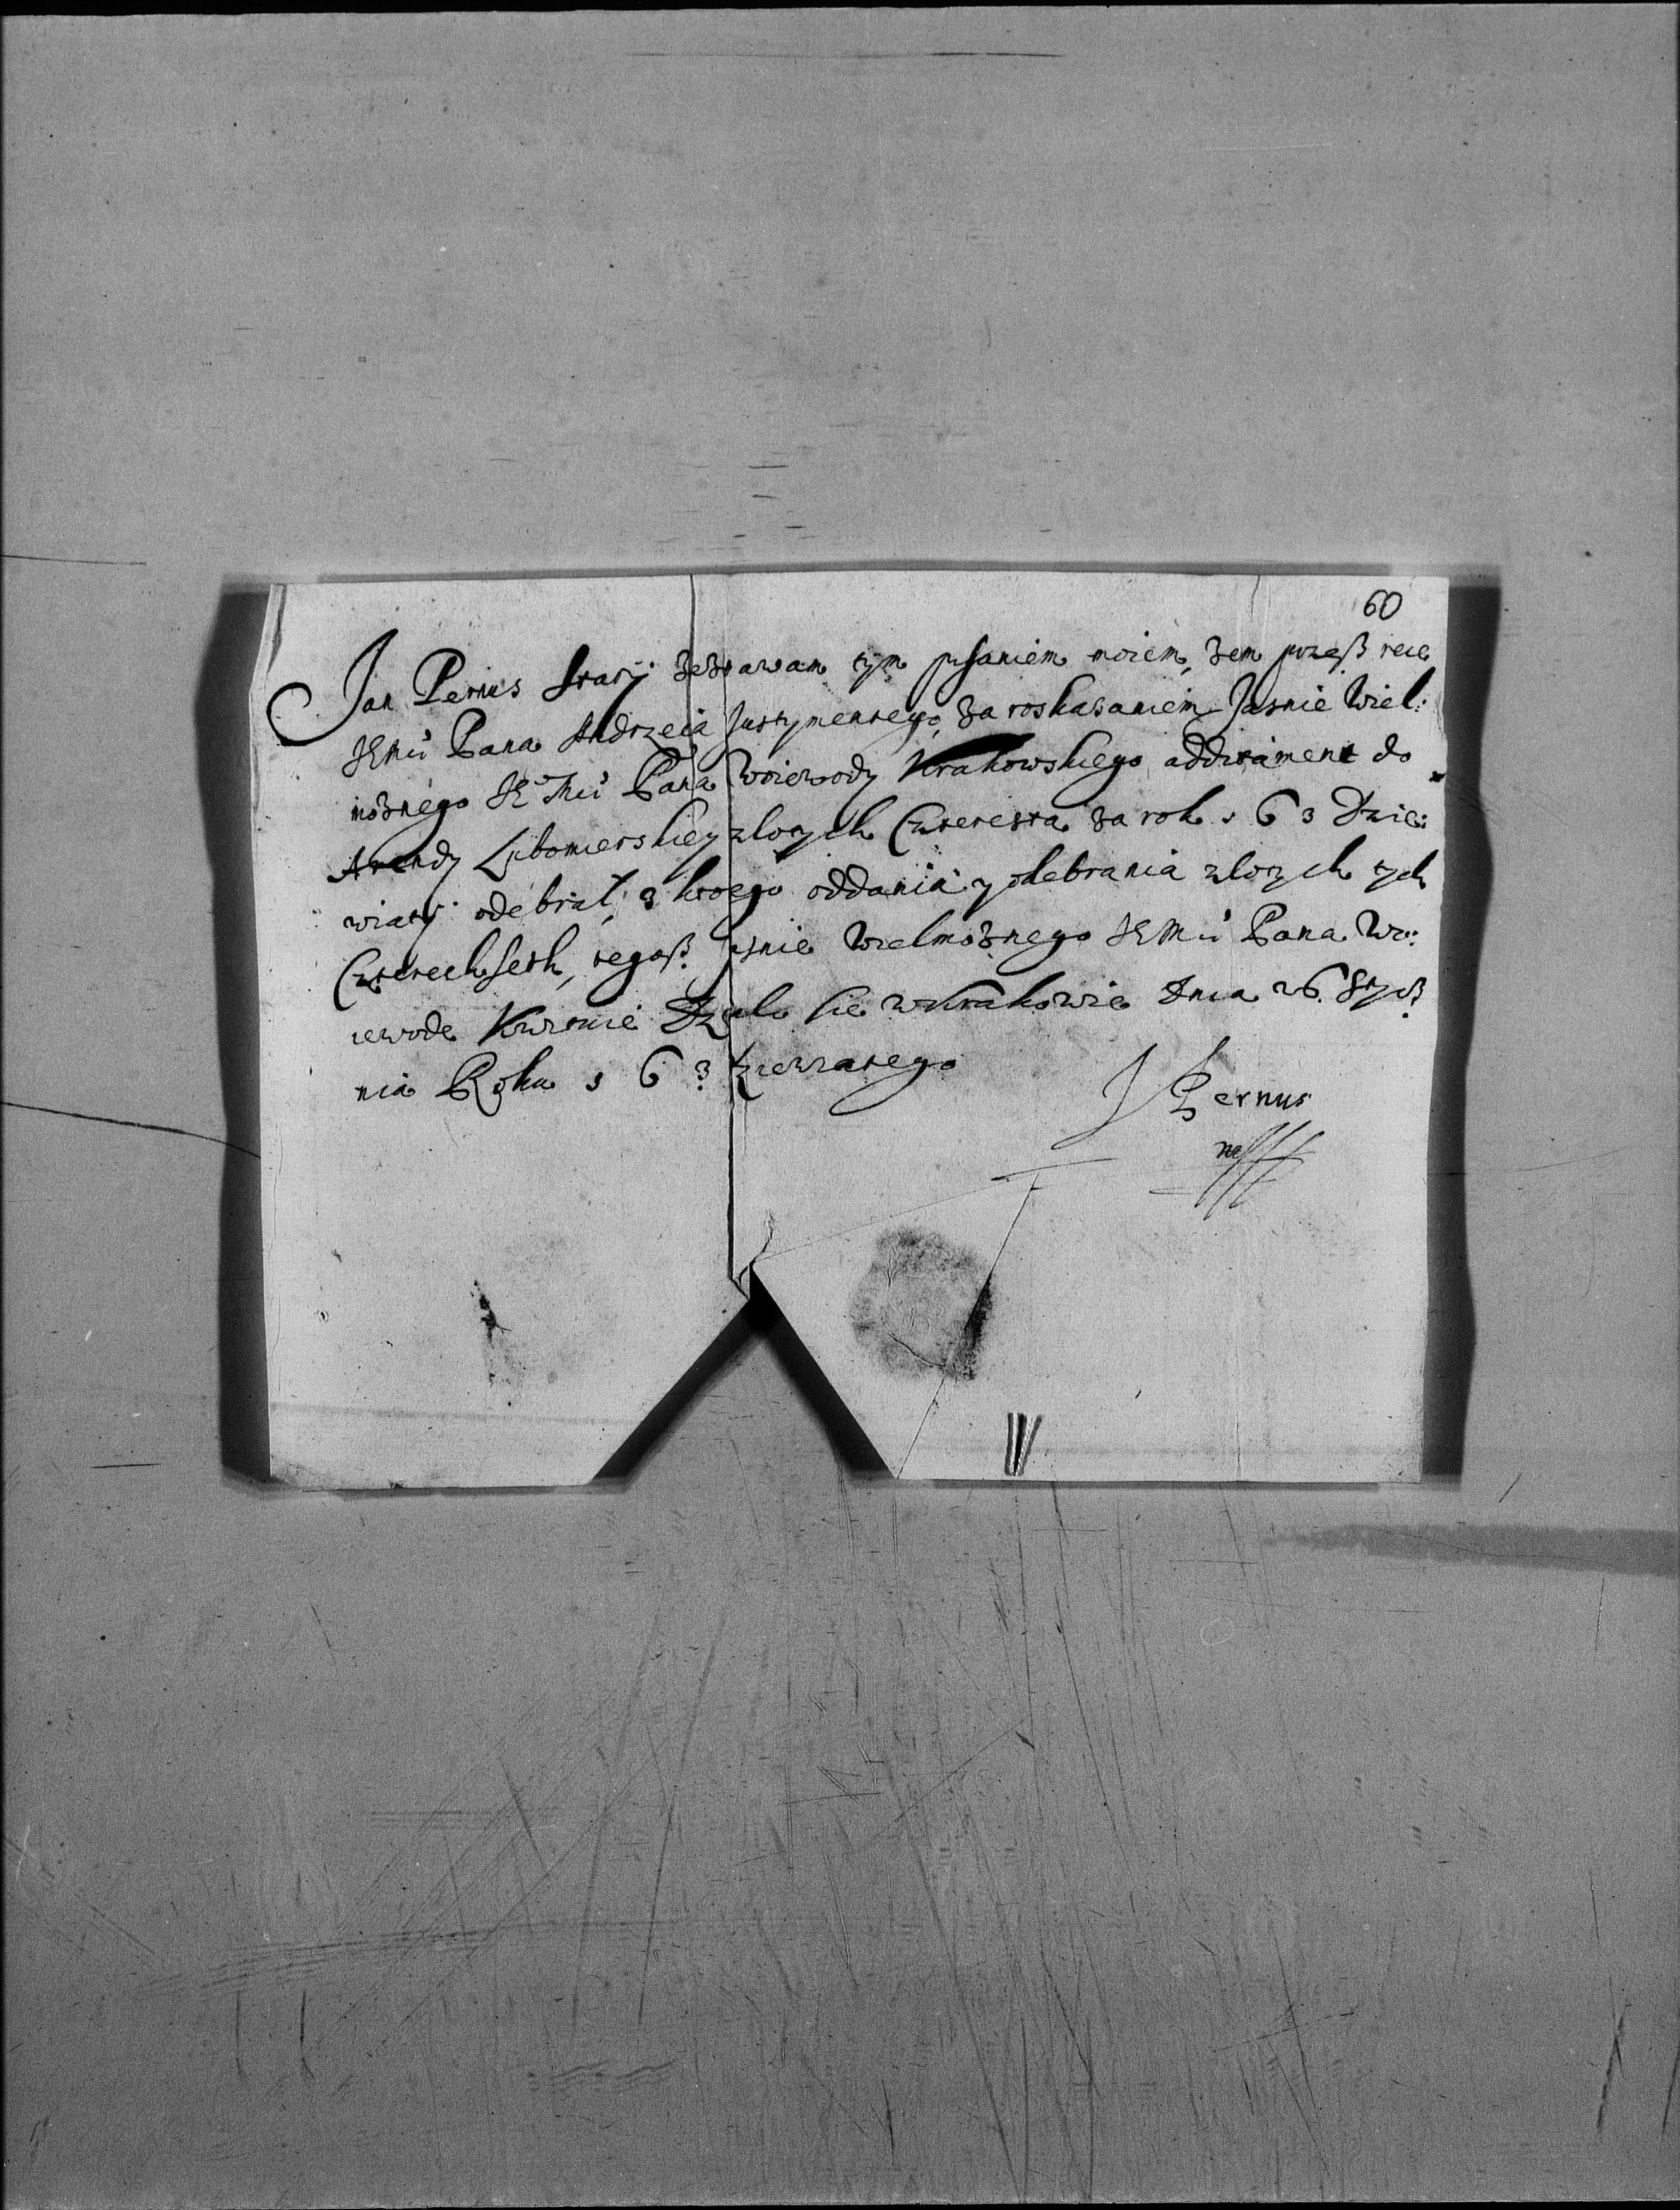 60
Jan Pernus Stary zeznawam tym pisaniem moiem, zem przeß rece
JEMci Pana Andrzeia Justymentego, za roskasaniem Jasnie Wiel:
moznego JE Mci Pana Woiewody Krakowskiego additament do
Arendy Lubomierskiey zlotych Czterysta za rok 163 Dzie:
wiaty odebrał, z ktorego oddania y odebrania zlotych tych
Czterechseth, tegoß Jasnie Wielmoznego JEMci Pana Wo:
iewode Kwituie Dzialo sie w Krakowie Dnia 26 Stycz
nia Roku 163 Dziewiatego
J Pernus
mp